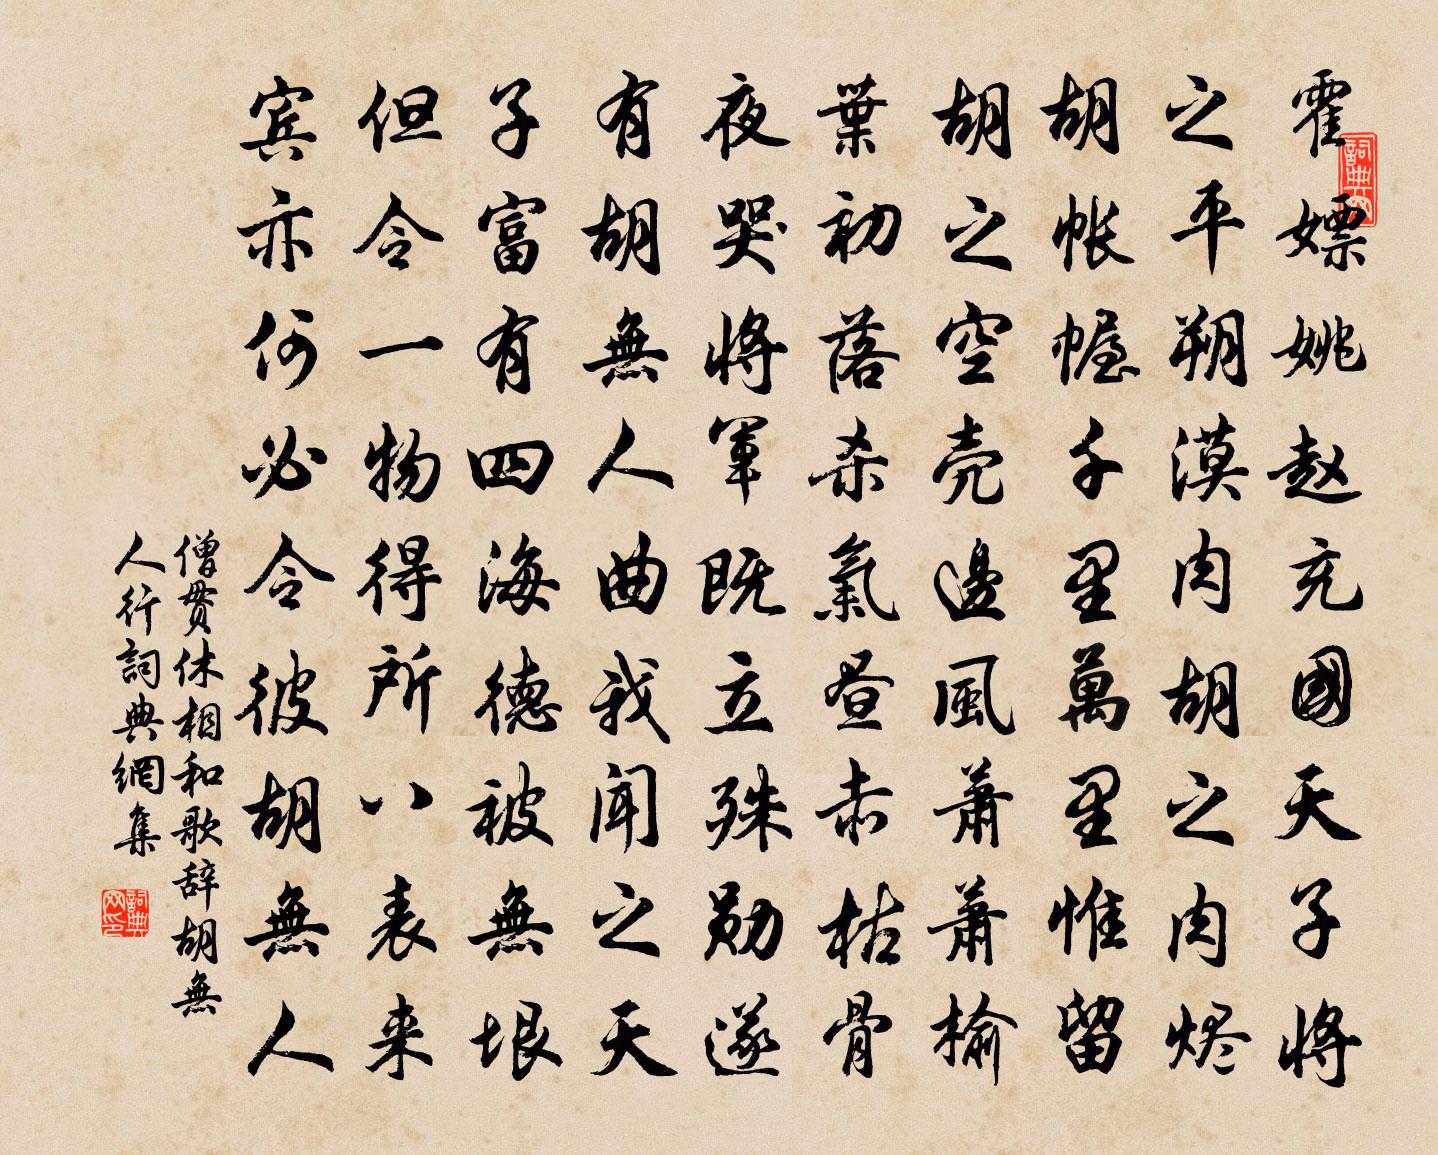 霍嫖姚赵充國天子將
之平朔漠肉胡之肉烬
胡帐幄千里萬里惟留
胡之空壳邊風蕭蕭榆
葉初落杀氣昼赤枯骨
夜哭將軍既立殊勋遂
有胡無人曲我闻之天
子富有四海德被無垠
但令一物得所八表来
宾亦何必令彼胡無人
僧贯休相和歌辞胡無
人行詞典網集
詞典网
詞典网印